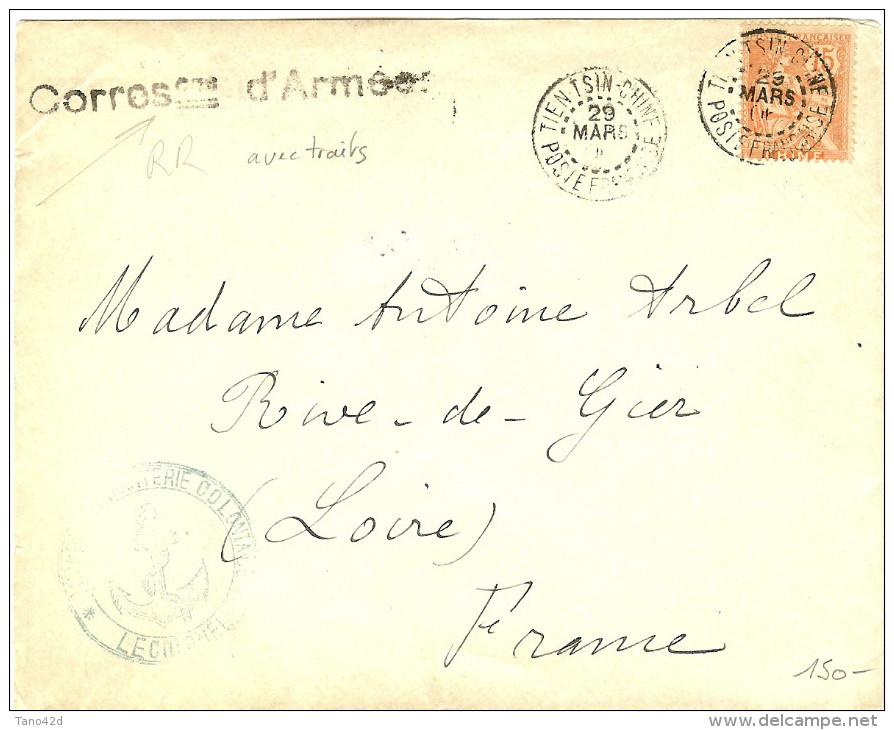 Corres^ces d'Armées
RR avec traits
TIEN-TSIN-CHINE
29
MARS
POSTE FRANÇAISE
TIEN-TSIN-CHINE
29
MARS
POSTE FRANÇAISE
15
CHINE
Madame Antoine Arbel
Rive-de-Gier
(Loire)
France
INFANTERIE COLONIALE
LE COLONEL
150-
Tano42d
www.delcampe.net